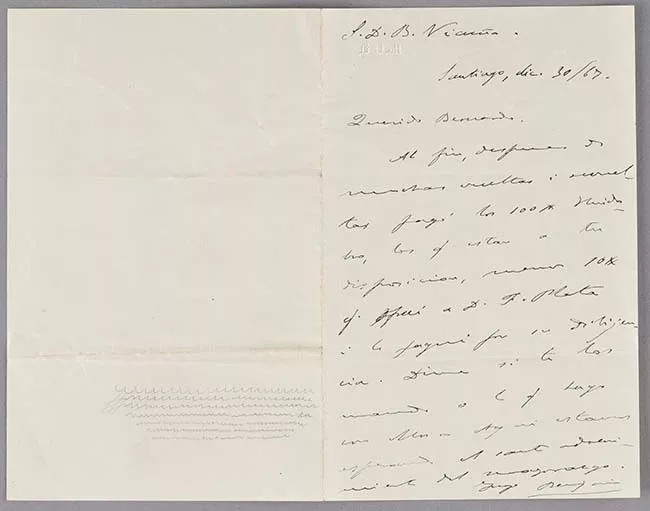 S. D. B. Vicuña.
Santiago, dic. 30/67.
Querido Bernardo.
Al fin, despues de
muchas vueltas i revuel-
tas pagó los 100
los q estan a tu
disposicion, menos 10
q a D. P. Plata
i le pagué por su dilijen-
cia. Dime si te los
mando o lo q hago
con ellos. Aqui estamos
esperando el
del mayorazgo.